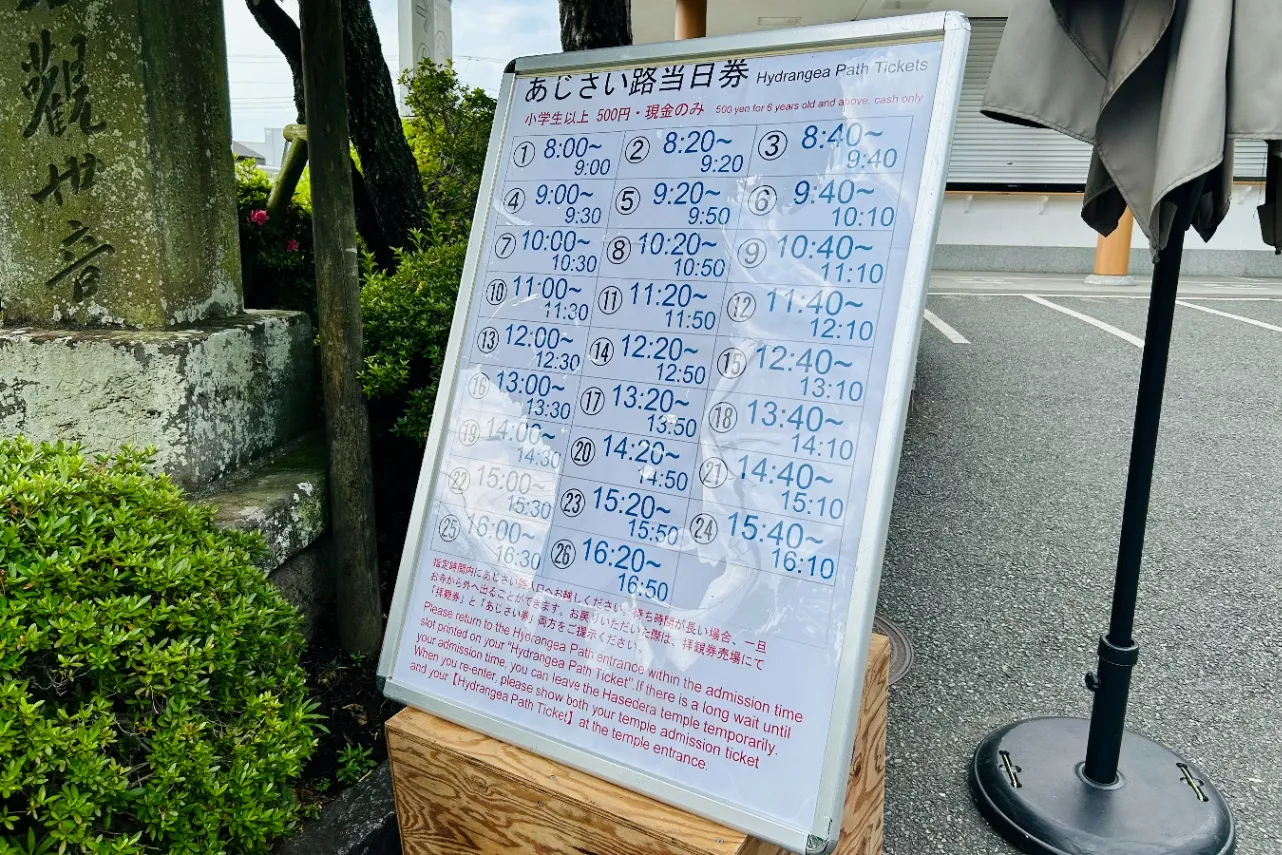 觀世音
あじさい路当日券 Hydrangea Path Tickets
小学生以上 500円・現金のみ 500 yen for 6 years old and above, cash only
① 8:00~ 9:00 ② 8:20~ 9:20 ③ 8:40~ 9:40
④ 9:00~ 9:30 ⑤ 9:20~ 9:50 ⑥ 9:40~ 10:10
⑦ 10:00~ 10:30 ⑧ 10:20~ 10:50 ⑨ 10:40~ 11:10
⑩ 11:00~ 11:30 ⑪ 11:20~ 11:50 ⑫ 11:40~ 12:10
⑬ 12:00~ 12:30 ⑭ 12:20~ 12:50 ⑮ 12:40~ 13:10
⑯ 13:00~ 13:30 ⑰ 13:20~ 13:50 ⑱ 13:40~ 14:10
⑲ 14:00~ 14:30 ⑳ 14:20~ 14:50 ㉑ 14:40~ 15:10
㉒ 15:00~ 15:30 ㉓ 15:20~ 15:50 ㉔ 15:40~ 16:10
㉕ 16:00~ 16:30 ㉖ 16:20~ 16:50
指定時間内にあじさい路入口へお越しください。待ち時間が長い場合、一旦
お寺から外へ出ることができます。お戻りいただいた際は、拝観券売場にて
「拝観券」と「あじさい券」両方をご提示ください。
Please return to the Hydrangea Path entrance within the admission time
slot printed on your "Hydrangea Path Ticket". If there is a long wait until
your admission time, you can leave the Hasedera temple temporarily.
When you re-enter, please show both your temple admission ticket
and your【Hydrangea Path Ticket】at the temple entrance.